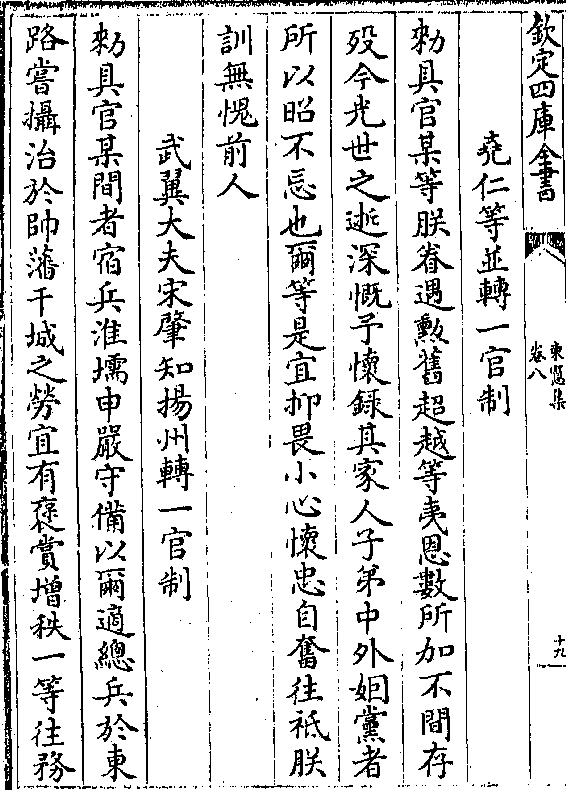 欽定四庫全書
東牕集
卷八
十九
堯仁等並轉一官制
勑具官某等朕眷遇勲舊超越等夷恩數所加不間存
歿今光世之逝深慨予懷録其家人子弟中外姻黨者
所以昭不忘也爾等是宜抑畏小心懷忠自奮往祗朕
訓無愧前人
武翼大夫宋肇知揚州轉一官制
勑具官某間者宿兵淮壖申嚴守備以爾適總兵於東
路嘗攝治於帥藩干城之勞宜有襃賞增秩一等往務